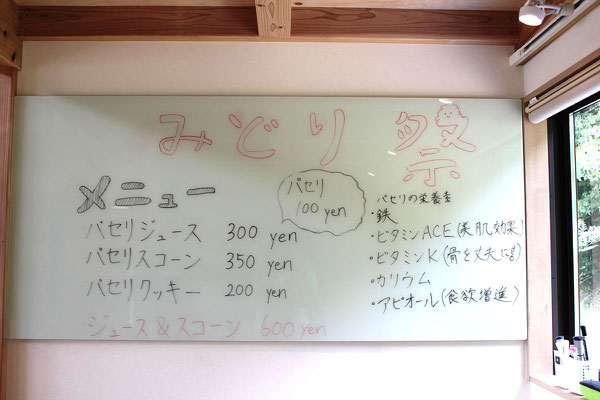 みどり祭
メニュー
・パセリジュース 300 yen
・パセリスコーン 350 yen
・パセリクッキー 200 yen
・ジュース&スコーン 600 yen
パセリ
100 yen
パセリの栄養素
・鉄
・ビタミンACE(美肌効果)
・ビタミンK(骨を丈夫に!)
・カリウム
・アピオール(食欲増進)